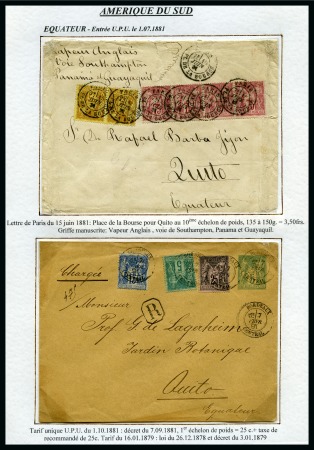 AMERIQUE DU SUD
EQUATEUR - Entrée U.P.U. le 1.07.1881
Vapeur Anglais
Voie Southampton
Panama & Guayaquil
Sr. Dn Rafael Barba Jijon
Quito
Equateur
Lettre de Paris du 15 juin 1881: Place de la Bourse pour Quito au 10ème échelon de poids, 135 à 150g. = 3,50frs.
Griffe manuscrite: Vapeur Anglais , voie de Southampton, Panama et Guayaquil.
Chargée
R
Monsieur
Prof G. de Lagerheim
Jardin Botanique
Quito
Equateur
Tarif unique U.P.U. du 1.10.1881 : décret du 7.09.1881, 1er échelon de poids = 25 c.+ taxe de
recommandé de 25c. Tarif du 16.01.1879 : loi du 26.12.1878 et décret du 3.01.1879